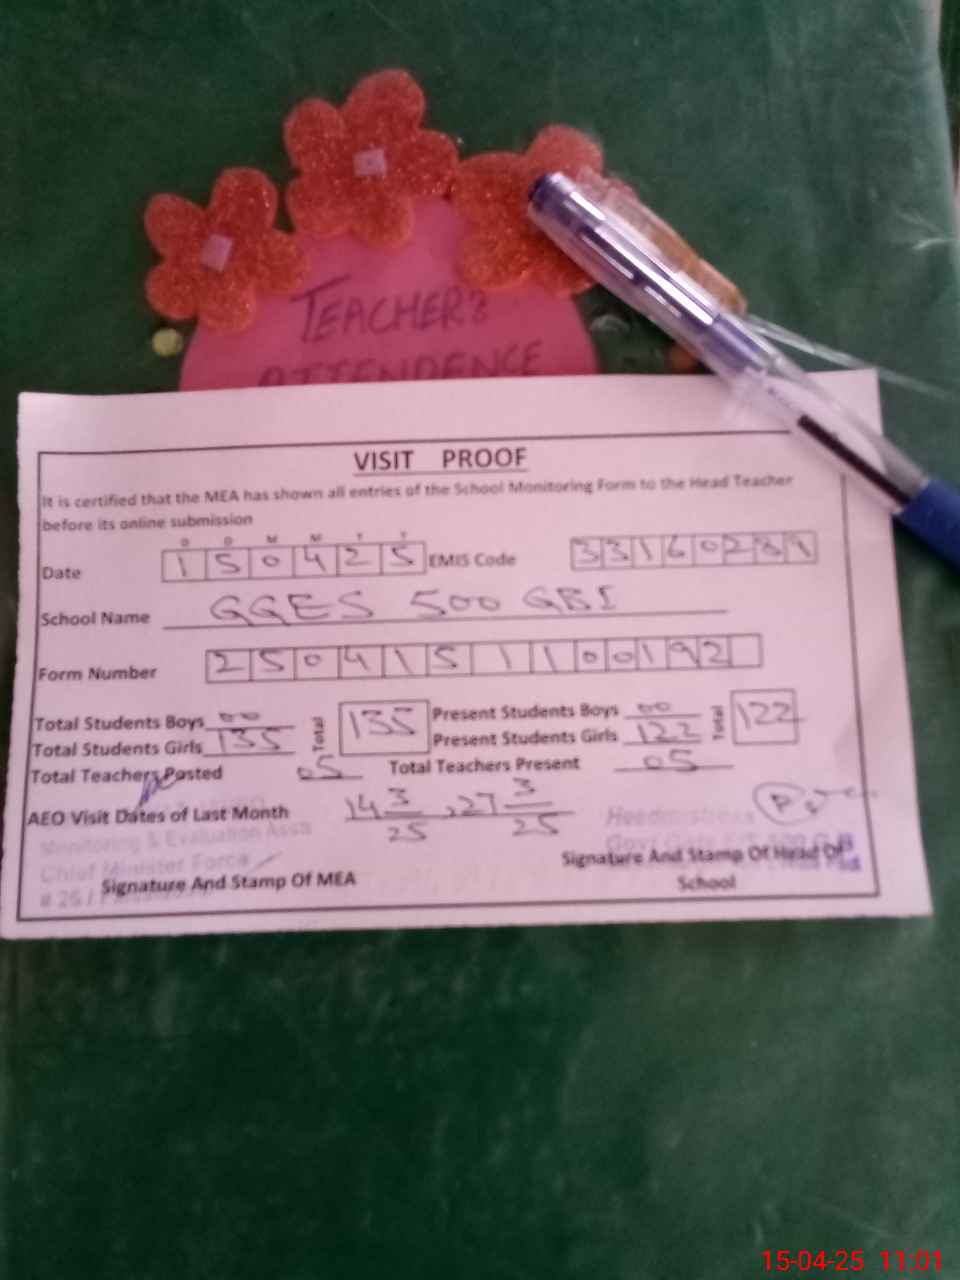 TEACHER'S
ATTENDENCE
VISIT PROOF
It is certified that the MEA has shown all entries of the School Monitoring Form to the Head Teacher
before its online submission
D D M M Y Y
Date 150425 EMIS Code 33160289
School Name GGES 500 GBI
Form Number 2504151100192
Total Students Boys 00 Total 135 Present Students Boys 00 Total 122
Total Students Girls 135 Present Students Girls 122
Total Teachers Posted 05 Total Teachers Present 05
AEO Visit Dates of Last Month 14 3/25, 27 3/25
Headmistress
Monitoring & Evaluation Asstt
Chief Minister Force
Signature And Stamp Of MEA
Signature And Stamp Of Head Of
School
15-04-25 11:01